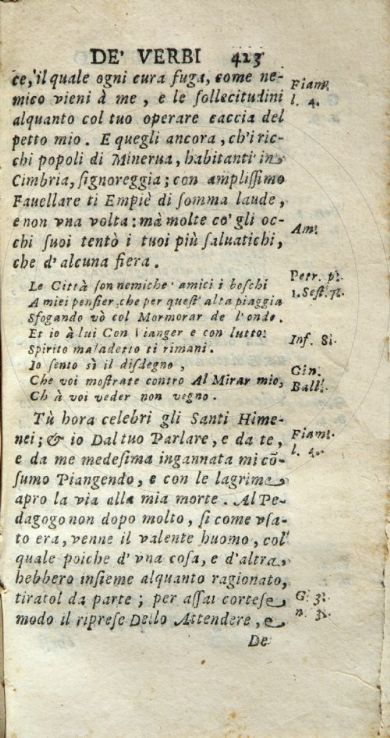 DE' VERBI 423
ce, il quale ogni cura fuga, come ne-
mico vieni à me, e le sollecitudini
alquanto col tuo operare caccia del
petto mio. E quegli ancora, ch'i ric-
chi popoli di Minerua, habitanti in
Cimbria, signoreggia; con amplissimo
Fauellare ti Empiè di somma laude,
e non vna volta: mà molte co'gli oc-
chi suoi tentò i tuoi più saluatichi,
che d'alcuna fiera.
Le Città son nemiche amici i boschi
A miei pensier, che per quest' alta piaggia
Sfogando vò col Mormorar de l'onde.
Et io à lui Con Pianger e con lutto
Spirito maladetto ti rimani.
Io sento sì il disdegno,
Che voi mostrate contro Al Mirar mio,
Ch à voi veder non vegno.
Tù hora celebri gli Santi Hime-
nei; & io Dal tuo Parlare, e da te,
e da me medesima ingannata mi cõ-
sumo Piangendo, e con le lagrime
apro la via alla mia morte. Al Pe-
dagogo non dopo molto, si come vsa-
to era, venne il valente huomo, col
quale poiche d'vna cosa, e d'altra
hebbero insieme alquanto ragionato,
tiratol da parte; per assai cortese
modo il riprese Dello Attendere, e
De
Fiam.
l. 4.
Am.
Petr. p.
1. Sest.
Inf. 8.
Cin.
Ball.
Fiam.
l.
G. 3.
n. 3.